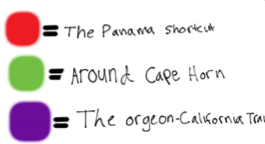 = The Panama shortcut
= Around Cape Horn
= The orgeon-California Trai